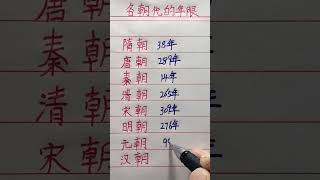 各朝代的年限
隋朝 38年
唐朝 289年
秦朝 14年
清朝 265年
宋朝 309年
明朝 276年
元朝 9
汉朝